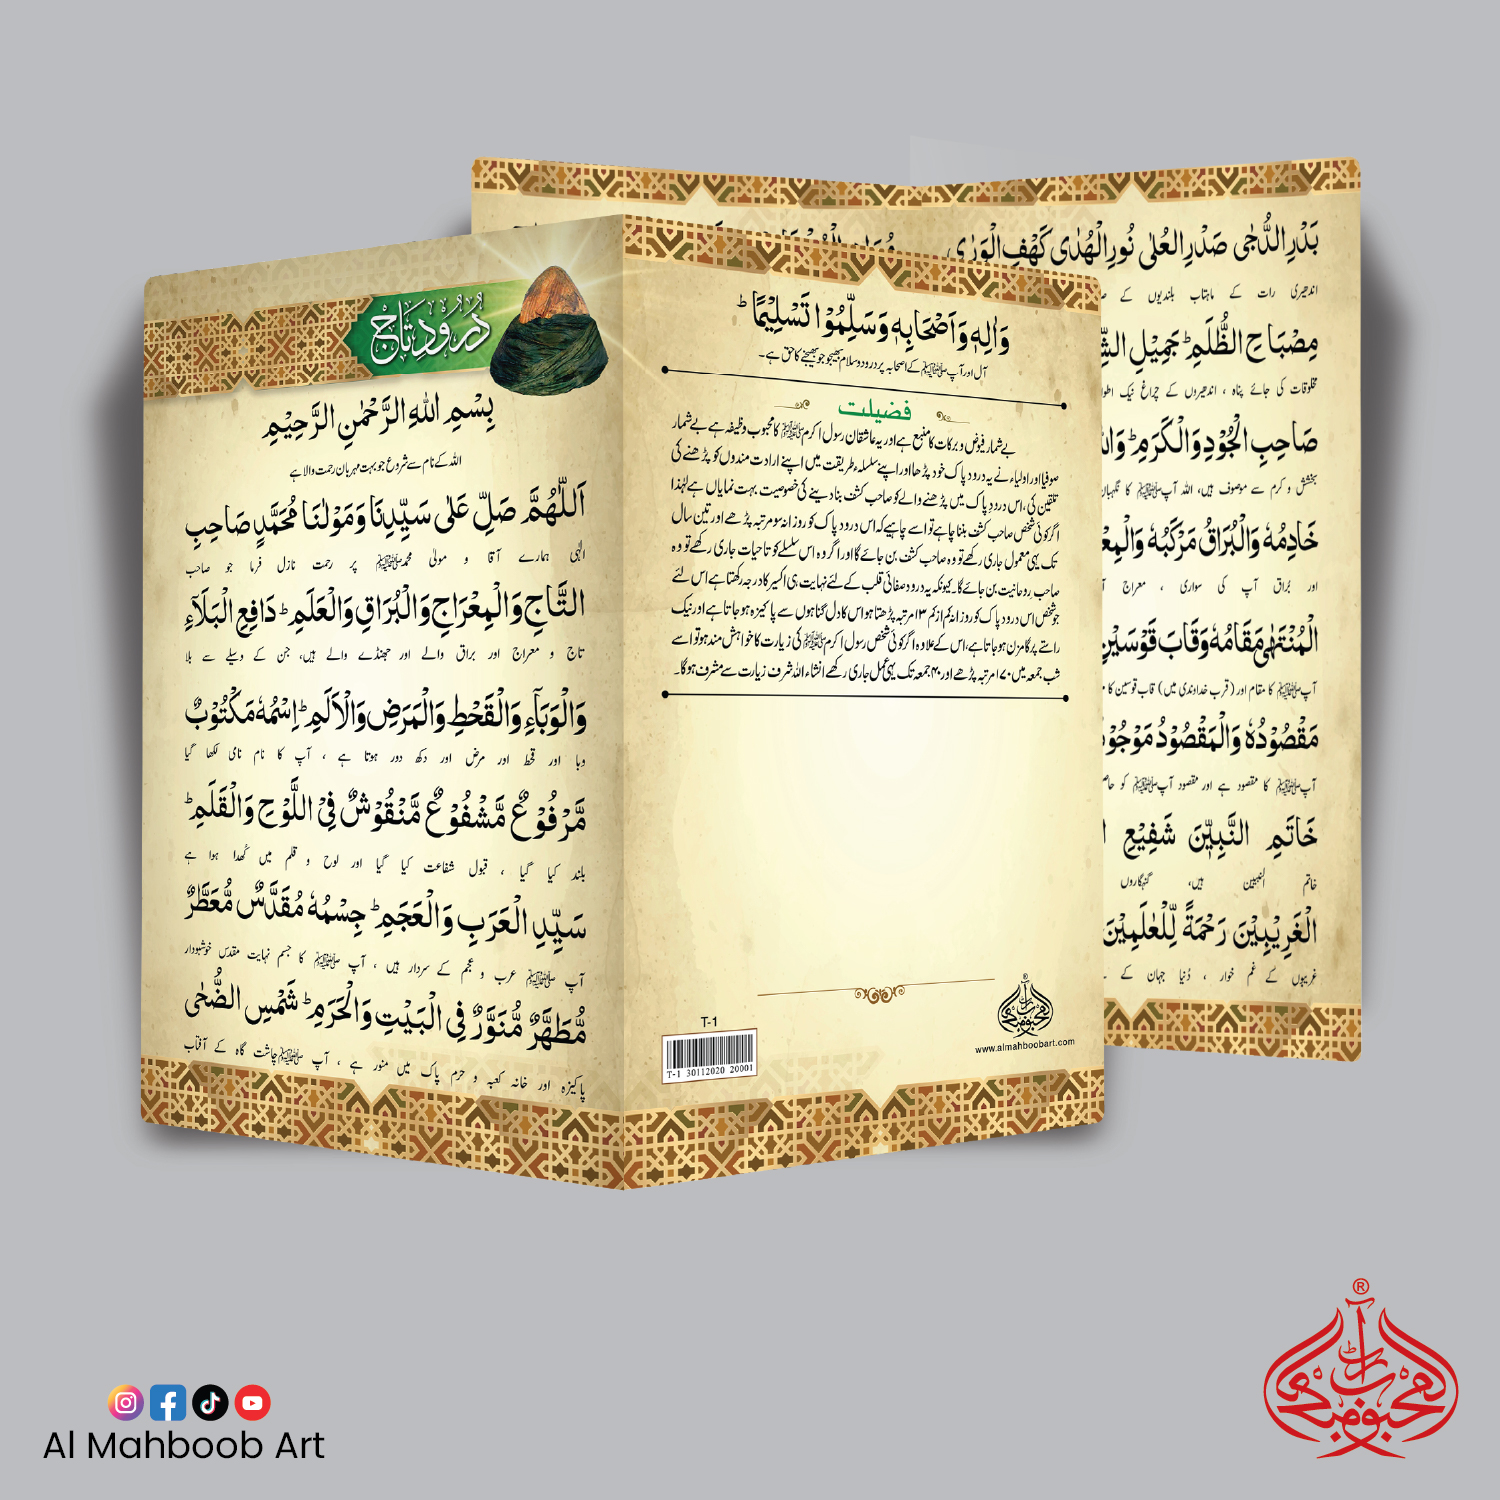 دُرُوْدِ تَاجْ
بِسْمِ اللّٰهِ الرَّحْمٰنِ الرَّحِيْمِ
اللہ کے نام سے شروع جو بہت مہربان رحمت والا ہے
اَللّٰهُمَّ صَلِّ عَلٰى سَيِّدِنَا وَمَوْلٰنَا مُحَمَّدٍ صَاحِبِ
الٰہی ہمارے آقا و مولیٰ محمدﷺ پر رحمت نازل فرما جو صاحب
التَّاجِ وَالْمِعْرَاجِ وَالْبُرَاقِ وَالْعَلَمِ ؕ دَافِعِ الْبَلَآءِ
تاج و معراج اور براق والے اور جھنڈے والے ہیں، جن کے وسیلے سے بلا
وَالْوَبَآءِ وَالْقَحْطِ وَالْمَرَضِ وَالْاَلَمِ ؕ اِسْمُهٗ مَكْتُوْبٌ
وبا اور قحط اور مرض اور دکھ دور ہوتا ہے ، آپ کا نام نامی لکھا گیا
مَّرْفُوْعٌ مَّشْفُوْعٌ مَّنْقُوْشٌ فِى اللَّوْحِ وَالْقَلَمِ ؕ
بلند کیا گیا ، قبول شفاعت کیا گیا اور لوح و قلم میں کُھدا ہوا ہے
سَيِّدِ الْعَرَبِ وَالْعَجَمِ ؕ جِسْمُهٗ مُقَدَّسٌ مُّعَطَّرٌ
آپ ﷺ عرب و عجم کے سردار ہیں ، آپ ﷺ کا جسم نہایت مقدس خوشبودار
مُّطَهَّرٌ مُّنَوَّرٌ فِى الْبَيْتِ وَالْحَرَمِ ؕ شَمْسِ الضُّحٰى
پاکیزہ اور خانہ کعبہ و حرم پاک میں منور ہے ، آپ ﷺ چاشت گاہ کے آفتاب
وَاٰلِهٖ وَاَصْحَابِهٖ وَسَلِّمُوْا تَسْلِيْمًا ؕ
آل اور آپ ﷺ کے اصحابہ پر درود و سلام بھیجو جو بھیجنے کا حق ہے۔
فضیلت
بے شمار فیوض و برکات کا منبع ہے اور یہ عاشقان رسول اکرم ﷺ کا محبوب وظیفہ ہے بے شمار
صوفیا اور اولیاء نے یہ درود پاک خود پڑھا اور اپنے سلسلہ طریقت میں اپنے ارادت مندوں کو پڑھنے کی
تلقین کی، اس درود پاک میں پڑھنے والے کو صاحب کشف بنا دینے کی خصوصیت بہت نمایاں ہے لہٰذا
اگر کوئی شخص صاحب کشف بننا چاہے تو اسے چاہیے کہ اس درود پاک کو روزانہ سو مرتبہ پڑھے اور تین سال
تک یہی معمول جاری رکھے تو وہ صاحب کشف بن جائے گا اور اگر وہ اس سلسلے کو تا حیات جاری رکھے تو وہ
صاحب روحانیت بن جائے گا۔ کیونکہ یہ درود صفائی قلب کے لئے نہایت ہی اکسیر کا درجہ رکھتا ہے اس لئے
جو شخص اس درود پاک کو روزانہ کم از کم ۱۳ مرتبہ پڑھتا ہو اس کا دل گناہوں سے پاکیزہ ہو جاتا ہے اور نیک
راستے پر گامزن ہو جاتا ہے، اس کے علاوہ اگر کوئی شخص رسول اکرم ﷺ کی زیارت کا خواہش مند ہو تو اسے
شب جمعہ میں ۱۷۰ مرتبہ پڑھے اور ۴۰ جمعہ تک یہی عمل جاری رکھے انشاء اللہ شرف زیارت سے مشرف ہوگا۔
T-1
T-1 30112020 20001
www.almahboobart.com
بَدْرِ الدُّجٰى صَدْرِ الْعُلٰى نُوْرِ الْهُدٰى كَهْفِ الْوَرٰى
اندھیری رات کے ماہتاب بلندیوں کے
مِصْبَاحِ الظُّلَمِ ؕ جَمِيْلِ
مخلوقات کی جائے پناہ ، اندھیروں کے چراغ نیک
صَاحِبِ الْجُوْدِ وَالْكَرَمِ ؕ
بخشش و کرم سے موصوف ہیں، اللہ آپ ﷺ کا نگہبان
خَادِمُهٗ وَالْبُرَاقُ مَرْكَبُهٗ
اور بُراق آپ کی سواری ، معراج
الْمُنْتَهٰى مَقَامُهٗ وَقَابَ قَوْسَيْنِ
آپ ﷺ کا مقام اور (قرب خداوندی میں) قاب قوسین کا
مَقْصُوْدُهٗ وَالْمَقْصُوْدُ
آپ ﷺ کا مقصود ہے اور مقصود آپ ﷺ کو
خَاتَمِ النَّبِيّٖنَ شَفِيْعِ
خاتم النبیین ہیں، گنہگاروں
الْغَرِيْبِيْنَ رَحْمَةً لِّلْعٰلَمِيْنَ
غریبوں کے غم خوار ، دُنیا جہان کے
Al Mahboob Art
®
محبوب آرٹ